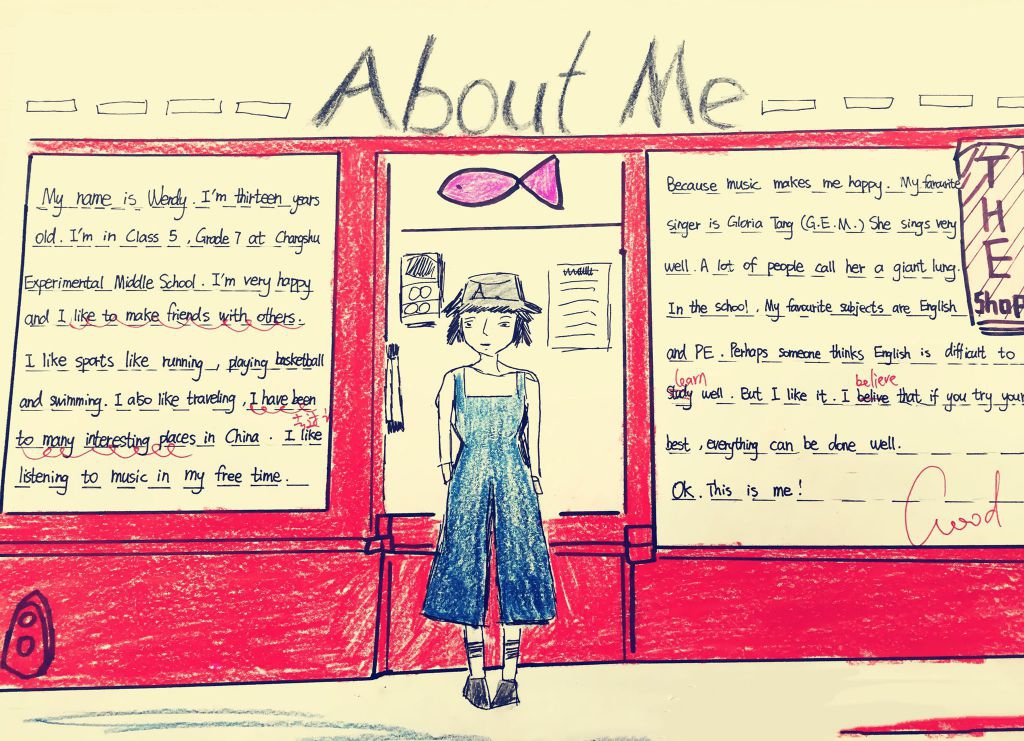 About Me
My name is Wendy. I'm thirteen years
old. I'm in Class 5, Grade 7 at Changshu
Experimental Middle School. I'm very happy
and I like to make friends with others.
I like sports like running, playing basketball
and swimming. I also like traveling, I have been
to many interesting places in China. I like
listening to music in my free time.
Because music makes me happy. My favourite
singer is Gloria Tang (G.E.M.) She sings very
well. A lot of people call her a giant lung.
In the school, My favourite subjects are English
and PE. Perhaps someone thinks English is difficult to
learn
study well. But I like it. I belive that if you try your
believe
best, everything can be done well.
Ok. This is me!
Good
THE
SHOP